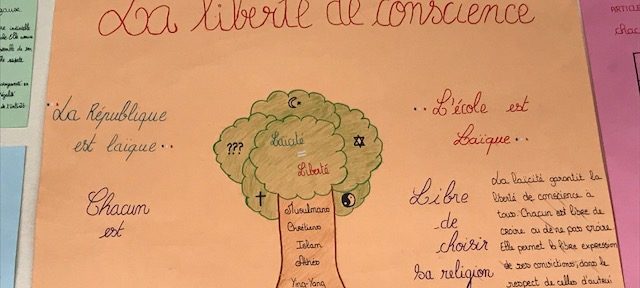 La liberté de conscience
..La République
est laïque..
Chacun
est
???
Laïcité
=
Liberté
Musulmans
Chrétiens
Islam
Athée
Ying-Yang
..L'école est
Laïque..
Libre
de
choisir
sa religion
La laïcité garantit la
liberté de conscience à
tous. Chacun est libre de
croire ou de ne pas croire.
Elle permet la libre expression
de ses convictions, dans le
respect de celles d'autrui
ARTICLE
chac